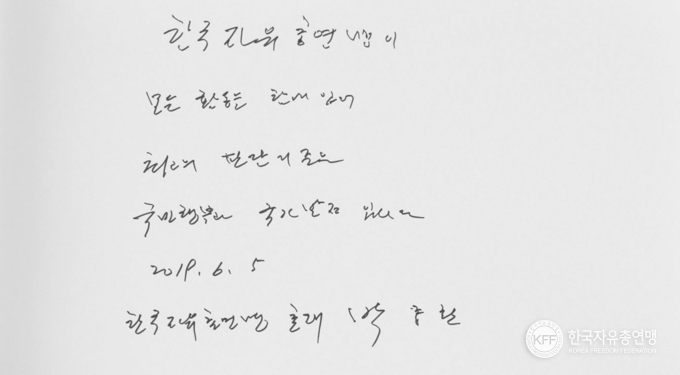 한국자유총연맹이
모든 활동을 함에 있어
최고의 판단기준은
국민행복과 국가발전 입니다
2019. 6. 5
한국자유총연맹 총재 박종환
KFF 한국자유총연맹
KOREA FREEDOM FEDERATION